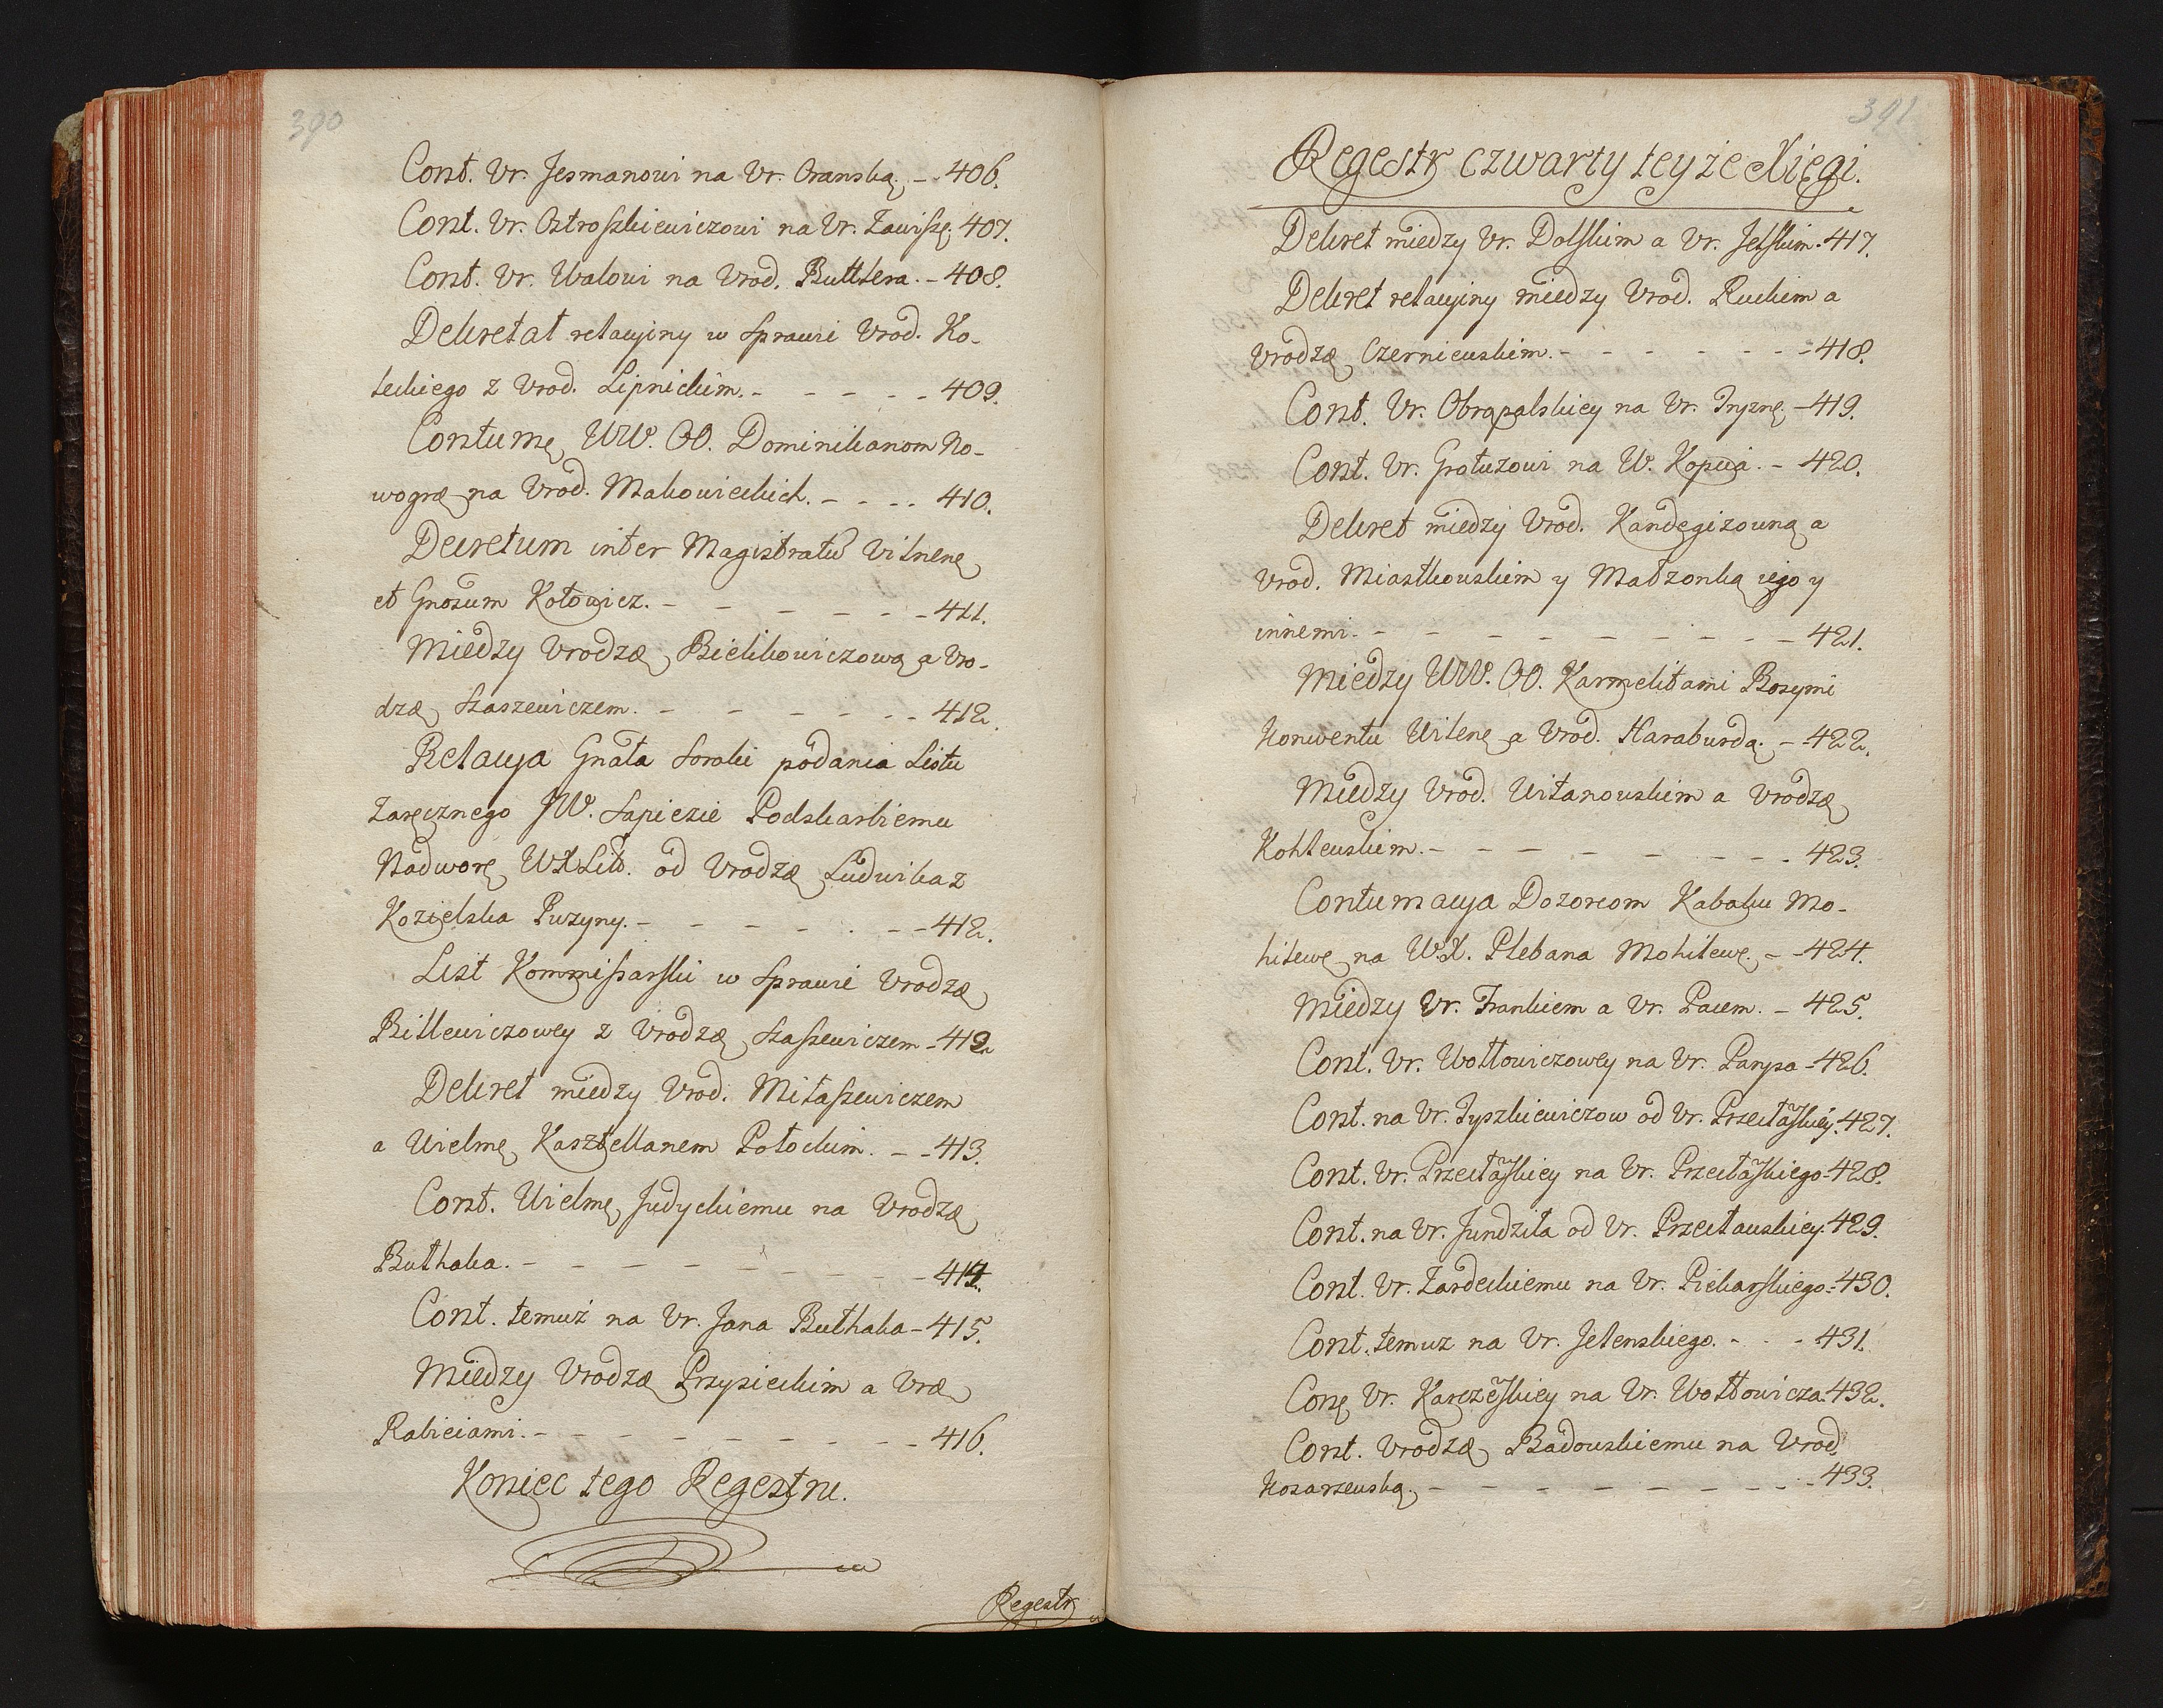 390
Cont. Ur. Jesmanowi na Ur. Oranską. - - 406.
Cont. Ur. Ostroszkiewiczowi na Ur. Zawiszę. 407.
Cont. Ur. Walowi na Urod. Buttlera. - 408.
Dekretat relacyiny w Sprawie Urod. Ko-
teckiego z Urod. Lipnickim. - - - - - 409.
Contume WW. OO. Dominikanom No-
wogræ na Urod. Makowieckich. - - - - 410.
Decretum inter Magistratũ Vilnene
et Gnosum Kotowicz. - - - - - - 411.
Miedzy Urodzæ Bielikowiczową a Uro-
dzæ Staszewiczem. - - - - - - 412.
Relacya Gnała Soroki podania Listu
Zaręcznego JW. Sapiezie Podskarbiemu
Nadwore WXLitt. od Urodzæ Ludwika z
Kozielska Puzyny. - - - - - - - 412.
List Kommissarski w Sprawie Urodzæ
Billewiczowey z Urodzæ Staszewiczem - 412
Dekret miedzy Urod. Mitaszewiczem
a Wielme Kasztellanem Połockim. - - 413.
Cont. Wielme Judyckiemu na Urodzæ
Buthaka. - - - - - - - - 414.
Cont. temuż na Ur. Jana Buthaka - 415.
Miedzy Urodzæ Przysieckim a Uræ
Rabieiami. - - - - - - - - 416.
Koniec tego Regestru.
Regestr
391
Regestr czwarty teyże Xięgi.
Dekret miedzy Ur. Dolskim a Ur. Jelskim. 417.
Dekret relacyiny miedzy Urod. Ruckim a
Urodzæ Czerniewskim. - - - - - - 418.
Cont. Ur. Obrąpalskiey na Ur. Tryznę. - 419.
Cont. Ur. Grotuzowi na W. Kopcia. - 420.
Dekret miedzy Urod. Kandegizowną a
Urod. Miastkowskim y Małzonką iego y
innemi. - - - - - - - - 421.
Miedzy WW. OO. Karmelitami Bosymi
Konwentu Wilene a Urod. Haraburdą. - 422.
Miedzy Urod. Witanowskim a Urodzæ
Kohlewskim. - - - - - - - 423.
Contumacya Dozorcom Kahału Mo-
hilewe na W.X. Plebana Mohilewe. - - 424.
Miedzy Ur. Frankiem a Ur. Pacem. - 425.
Cont. Ur. Wołłowiczowey na Ur. Parypa - 426.
Cont. na Ur. Tyszkiewiczow od Ur. Przecłaskiey. 427.
Cont. Ur. Przecłaskiey na Ur. Przecłaskiego - 428.
Cont. na Ur. Jundziła od Ur. Przecławskiey. 429.
Cont. Ur. Zardeckiemu na Ur. Piekarskiego. - 430.
Cont. temuz na Ur. Jelenskiego. - - - 431.
Cone Ur. Karczeskiey na Ur. Wołłowicza. 432.
Cont. Urodzæ Badowskiemu na Urod.
Kosarzewską. - - - - - - - - 433.